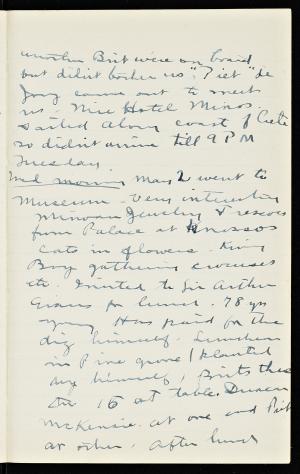 another Brit were on board
but didn't bother us. "Piet" de
Jong came out to meet
us. Nice Hotel Minos.
Sailed along coast of Crete
so didn't arrive till 9 PM
Tuesday
Wed morning May 2 went to
Museum - very interesting
Minoan Jewelry & frescoes
from Palace at Knossos
Cats in flowers - King
Boy gathering crocuses
etc. Invited to Sir Arthur
Evans for lunch. 78 yrs
young Has paid for the
dig himself. Luncheon
in Pine grove (planted
by himself)
16 at table. Duncan
McKenzie at one end Piet
at other. After lunch